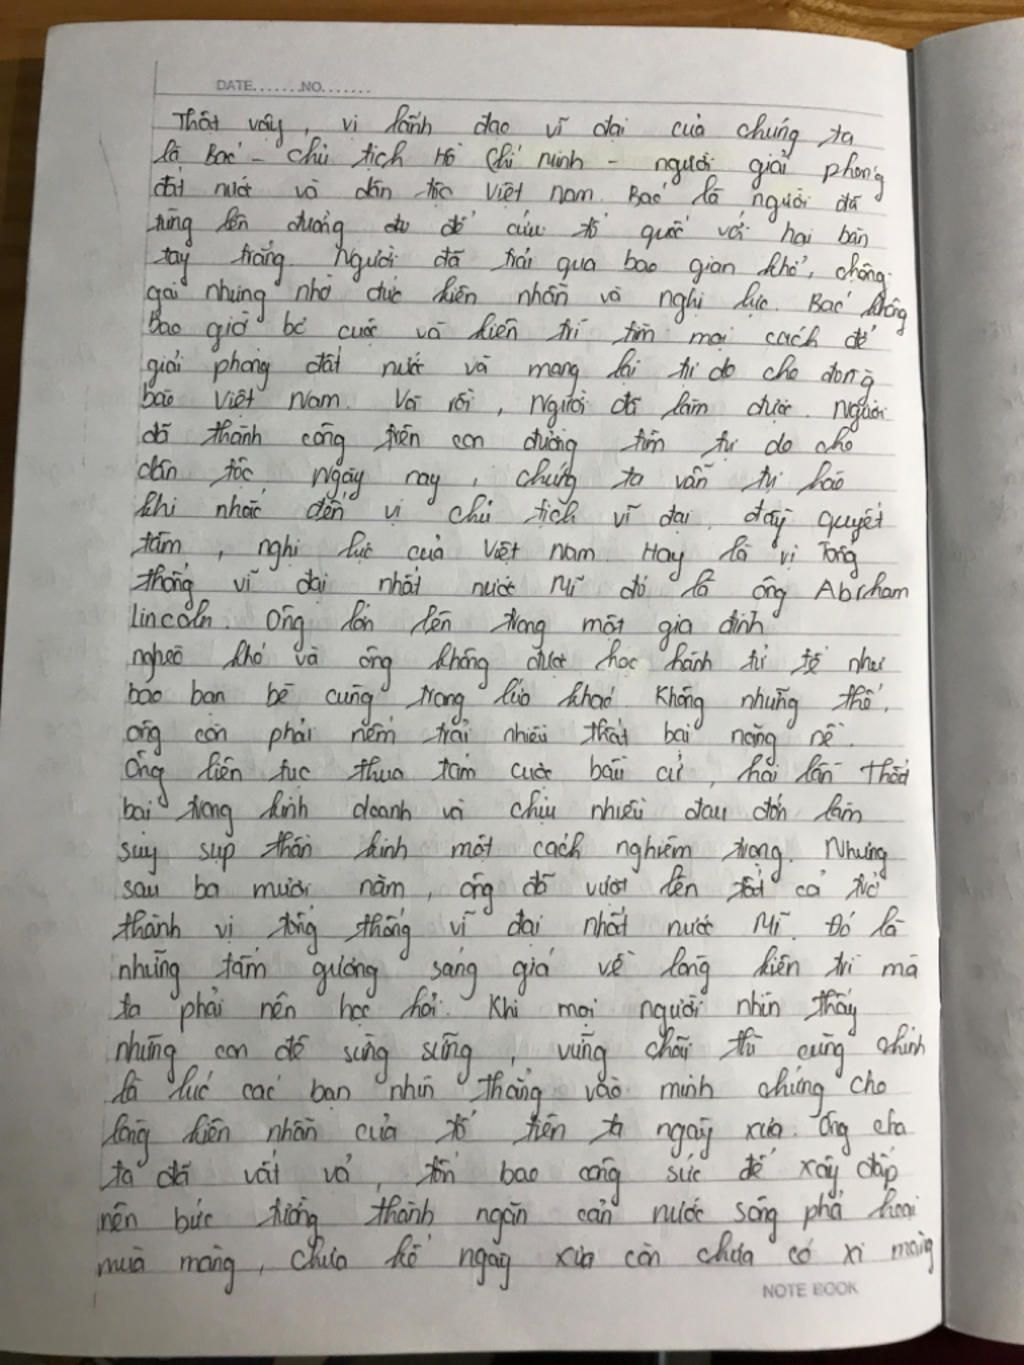 DATE.......NO.......
Thật vậy, vị lãnh đạo vĩ đại của chúng ta
là Bác - chủ tịch Hồ Chí Minh - người giải phóng
đất nước và dân tộc Việt Nam. Bác là người đã
từng lên đường đi để cứu tổ quốc với hai bàn
tay trắng. Người đã trải qua bao gian khổ, chông
gai nhưng nhờ đức kiên nhẫn và nghị lực. Bác không
bao giờ bỏ cuộc và kiên trì tìm mọi cách để
giải phóng đất nước và mang lại tự do cho đồng
bào Việt Nam. Và rồi, Người đã làm được. Người
đã thành công trên con đường tìm tự do cho
dân tộc. Ngày nay, chúng ta vẫn tự hào
khi nhắc đến vị chủ tịch vĩ đại, đầy quyết
tâm, nghị lực của Việt Nam. Hay là vị Tổng
thống vĩ đại nhất nước Mĩ đó là ông Abraham
Lincoln. Ông lớn lên trong một gia đình
nghèo khó và ông không được học hành tử tế như
bao bạn bè cùng trang lứa khác. Không những thế,
ông còn phải nếm trải nhiều thất bại nặng nề.
Ông liên tục thua tám cuộc bầu cử, hai lần thất
bại trong kinh doanh và chịu nhiều đau đớn làm
suy sụp thần kinh một cách nghiêm trọng. Nhưng
sau ba mươi năm, ông đã vượt lên tất cả trở
thành vị tổng thống vĩ đại nhất nước Mĩ. Đó là
những tấm gương sáng giá về lòng kiên trì mà
ta phải nên học hỏi. Khi mọi người nhìn thấy
những con đê sừng sững, vững chãi thì cũng chính
là lúc các bạn nhìn thẳng vào minh chứng cho
lòng kiên nhẫn của tổ tiên ta ngày xưa. Ông cha
ta đã vất vả, tốn bao công sức để xây đắp
nên bức tường thành ngăn cản nước sông phá hoại
mùa màng, chưa kể ngày xưa còn chưa có xi măng
NOTE BOOK